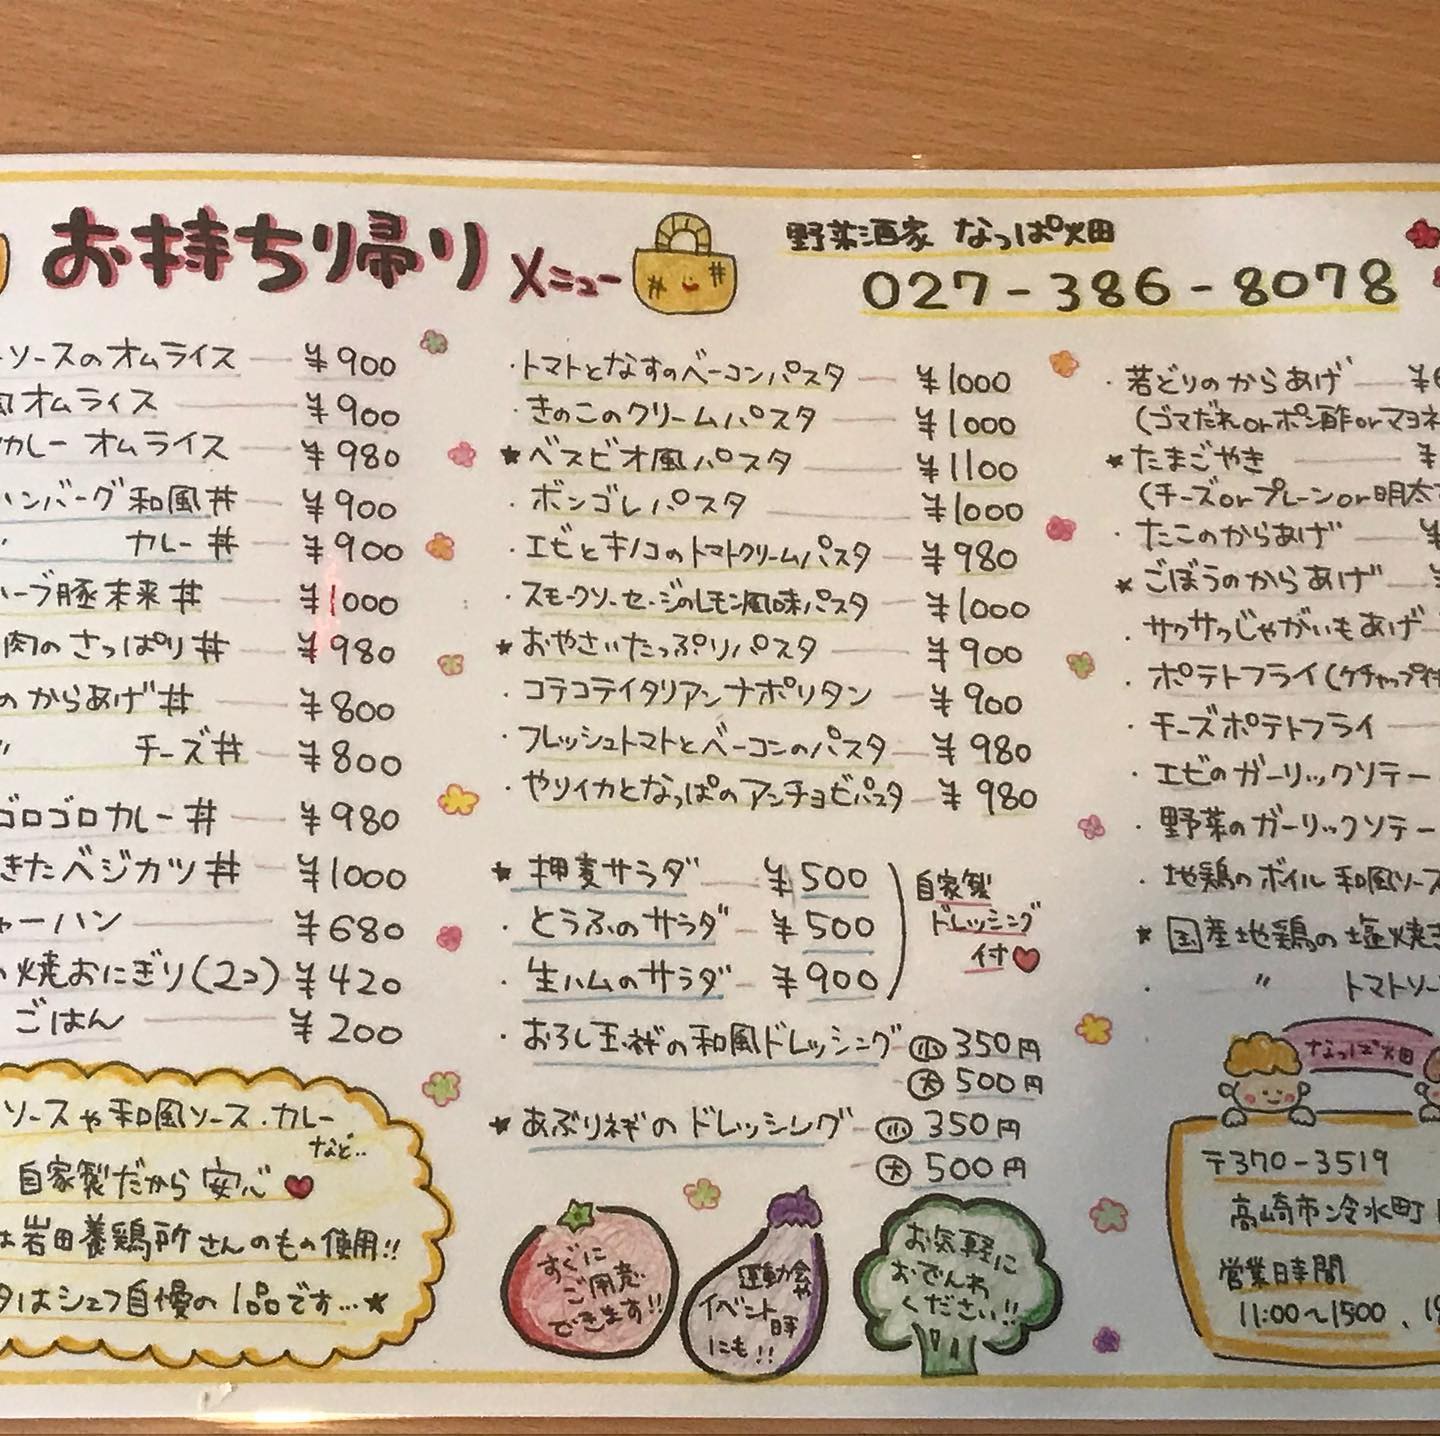 お持ち帰りメニュー
野菜酒家 なっぱ畑
027-386-8078
ソースのオムライス ¥900
風オムライス ¥900
カレー オムライス ¥980
ハンバーグ和風丼 ¥900
〃 カレー丼 ¥900
ハーブ豚未来丼 ¥1000
肉のさっぱり丼 ¥980
のからあげ丼 ¥800
〃 チーズ丼 ¥800
ゴロゴロカレー丼 ¥980
きたベジカツ丼 ¥1000
ャーハン ¥680
焼おにぎり(2コ) ¥420
ごはん ¥200
ソースや和風ソース・カレー
など..
自家製だから安心♥
は岩田養鶏所さんのもの使用!!
タはシェフ自慢の1品です...★
・トマトとなすのベーコンパスタ ¥1000
・きのこのクリームパスタ ¥1000
★ベスビオ風パスタ ¥1100
・ボンゴレパスタ ¥1000
・エビとキノコのトマトクリームパスタ ¥980
・スモークソーセージのレモン風味パスタ ¥1000
★おやさいたっぷりパスタ ¥900
・コテコテイタリアンナポリタン ¥900
・フレッシュトマトとベーコンのパスタ ¥980
・やりイカとなっぱのアンチョビパスタ ¥980
★押麦サラダ ¥500
・とうふのサラダ ¥500
・生ハムのサラダ ¥900
自家製
ドレッシング
付♥
・おろし玉ネギの和風ドレッシング 小 350円
大 500円
★あぶりネギのドレッシング 小 350円
大 500円
すぐに
ご用意
できます!!
運動会や
イベント時
にも!!
お気軽に
おでんわ
ください!!
・若どりのからあげ ¥6
(ゴマだれorポン酢orマヨネ
★たまごやき ¥
(チーズorプレーンor明太
・たこのからあげ ¥
★ごぼうのからあげ ¥
・サクサクじゃがいもあげ
・ポテトフライ(ケチャップ付
・チーズポテトフライ
・エビのガーリックソテー
・野菜のガーリックソテー
・地鶏のボイル 和風ソース
★国産地鶏の塩焼き
・〃 トマトソー
なっぱ畑
〒370-3519
高崎市冷水町
営業時間
11:00〜1500、19